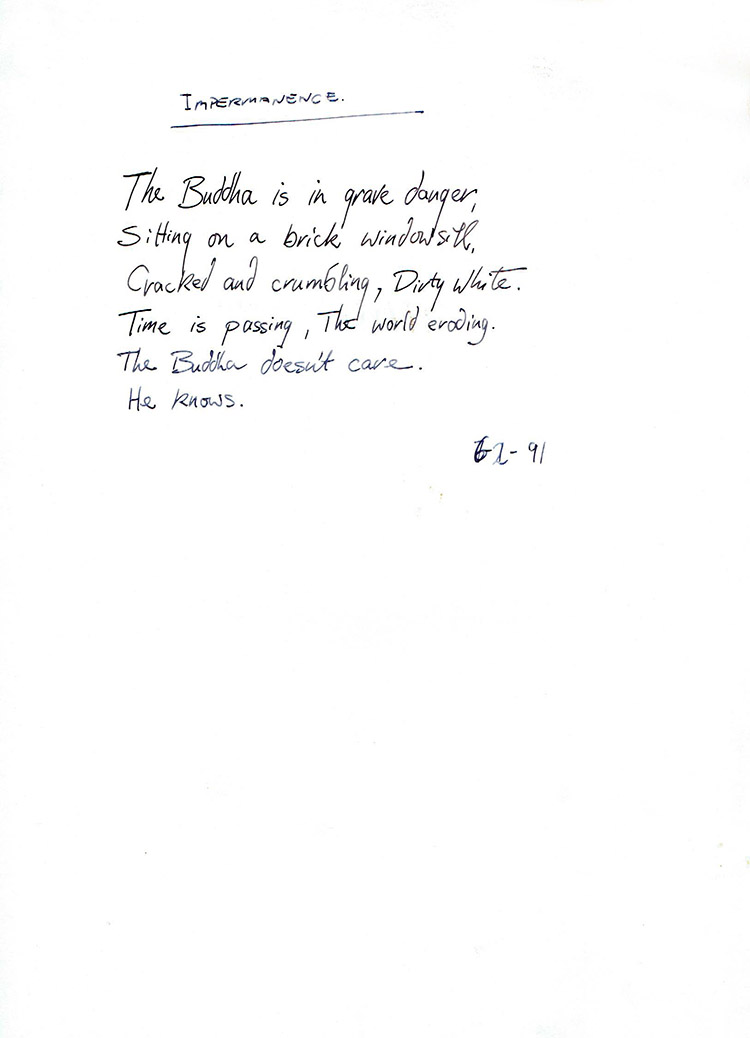 IMPERMANENCE.
The Buddha is in grave danger,
Sitting on a brick windowsill,
Cracked and crumbling, Dirty White.
Time is passing, The world eroding.
The Buddha doesn't care.
He knows.
91